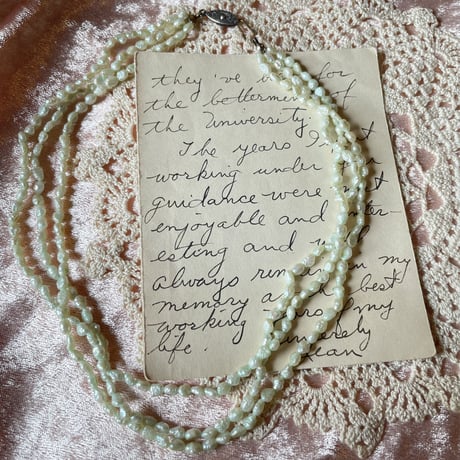 they've for
the betterment of
the University.
The years I
working under
guidance were most
enjoyable and inter-
esting and will
always remain in my
memory as best
working years of my
life. Sincerely
Jean